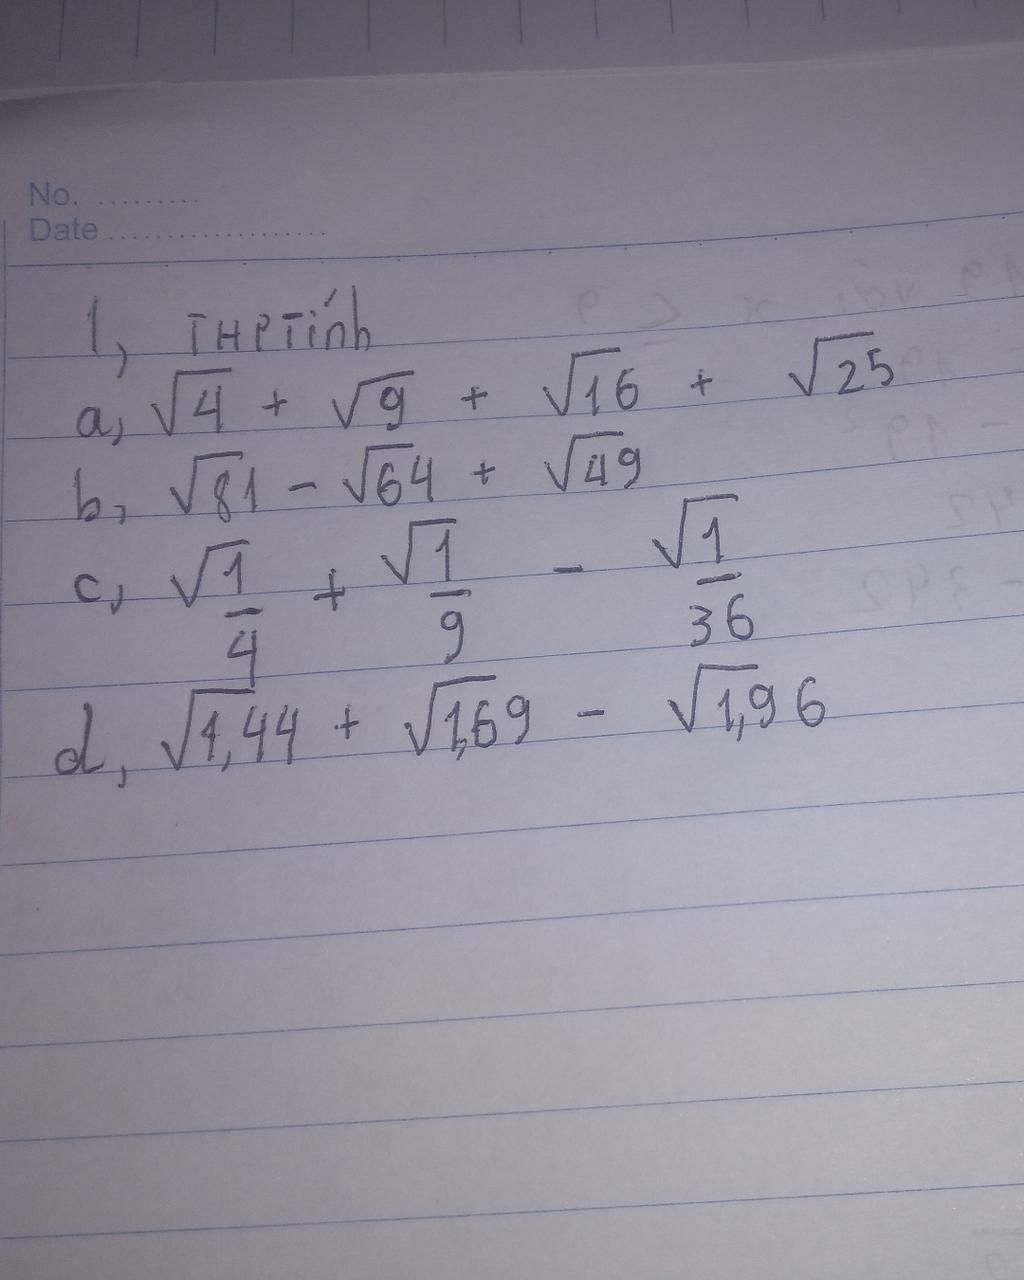 No. .........
Date ...................
1, THPTính
a, √4 + √9 + √16 + √25
b, √81 - √64 + √49
c, √1/4 + √1/9 - √1/36
d, √1,44 + √1,69 - √1,96